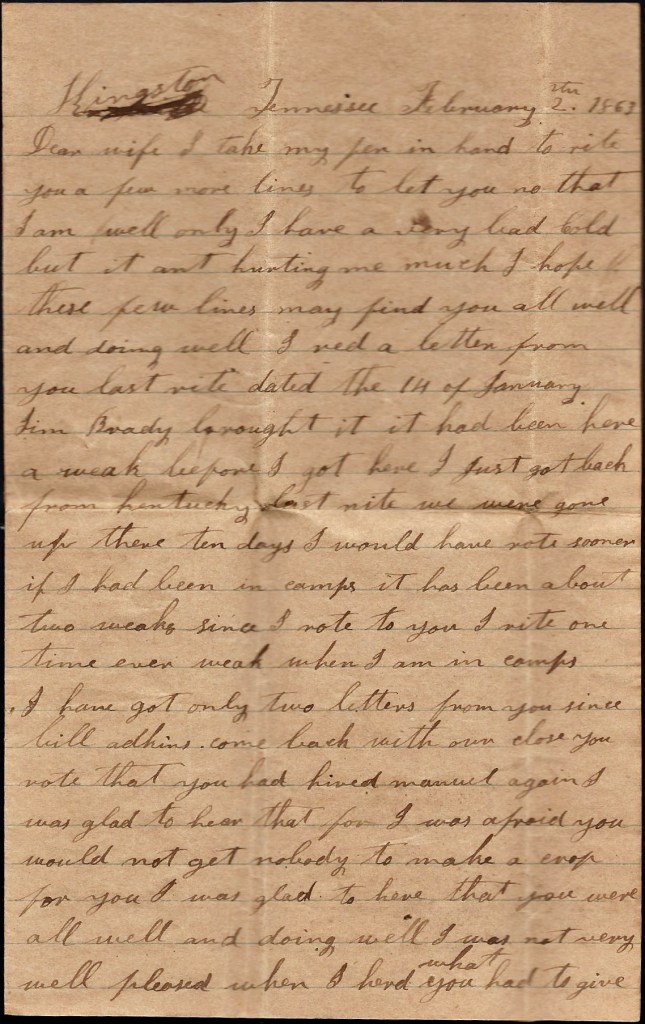 Kingston Tennessee February 2.th 1863
Dear wife I take my pen in hand to rite
you a few more lines to let you no that
I am well only I have a very bad Cold
but it ant hurting me much I hope
these few lines may find you all well
and doing well I red a letter from
you last nite dated the 14 of January
Jim Brady brought it it had been here
a weak before I got here I Just got back
from kentucky last nite we were gone
up there ten days I would have rote sooner
if I had been in camps it has been about
two weaks since I rote to you I rite one
time ever weak when I am in camps
I have got only two letters from you since
bill adkins come back with our close you
rote that you had hired manuel again I
was glad to hear that for I was afroid you
would not get nobody to make a crop
for you I was glad to here that you were
all well and doing well I was not very
well pleased when I herd what you had to give